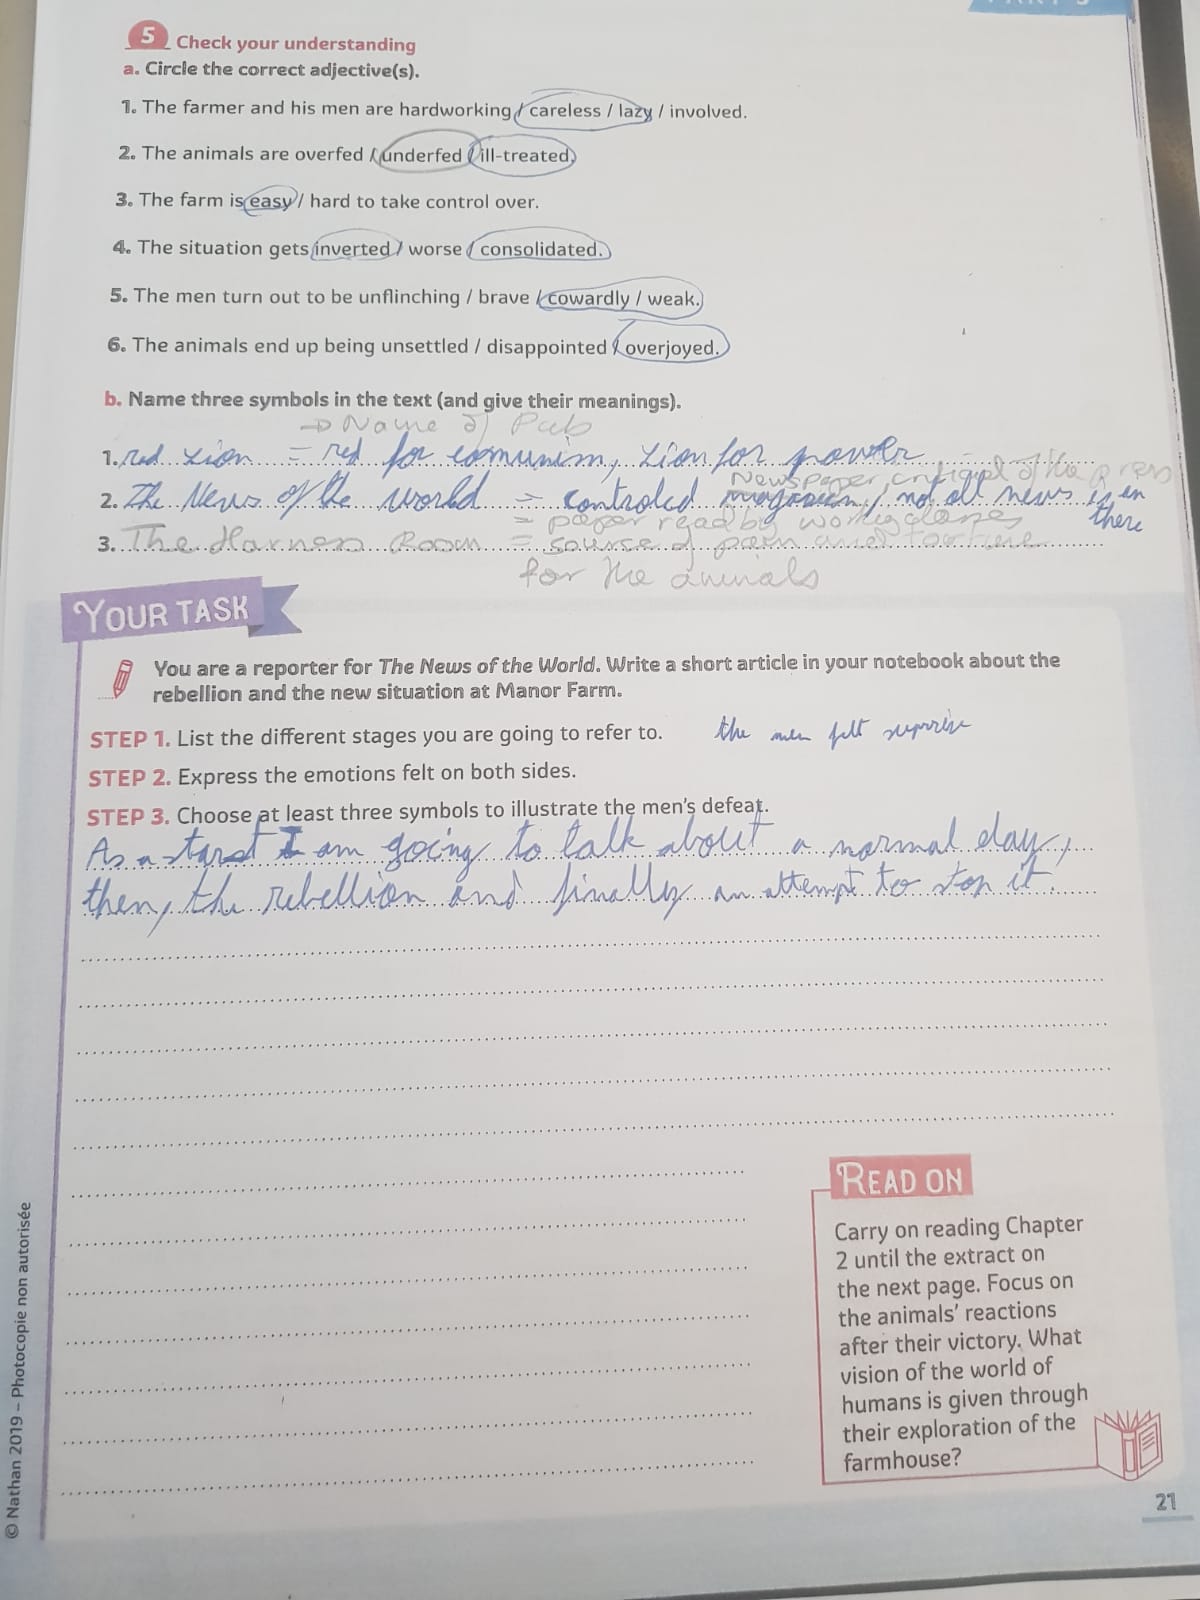 5 Check your understanding
a. Circle the correct adjective(s).
1. The farmer and his men are hardworking / careless / lazy / involved.
2. The animals are overfed / underfed / ill-treated.
3. The farm is easy / hard to take control over.
4. The situation gets inverted / worse / consolidated.
5. The men turn out to be unflinching / brave / cowardly / weak.
6. The animals end up being unsettled / disappointed / overjoyed.
b. Name three symbols in the text (and give their meanings).
→ Name of Pub
1. red Lion = red for comunism, Lion for power
Newspaper, critique of the press
2. The News of the world = controled / not all news is in there
= paper read by working class
3. The Harness Room = sourse of pain and torture
for the animals
YOUR TASK
You are a reporter for The News of the World. Write a short article in your notebook about the
rebellion and the new situation at Manor Farm.
STEP 1. List the different stages you are going to refer to. the men felt surprise
STEP 2. Express the emotions felt on both sides.
STEP 3. Choose at least three symbols to illustrate the men's defeat.
As a start I am going to talk about a normal day,
then, the rebellion and finally an attempt to stop it.
READ ON
Carry on reading Chapter
2 until the extract on
the next page. Focus on
the animals' reactions
after their victory. What
vision of the world of
humans is given through
their exploration of the
farmhouse?
© Nathan 2019 – Photocopie non autorisée
21